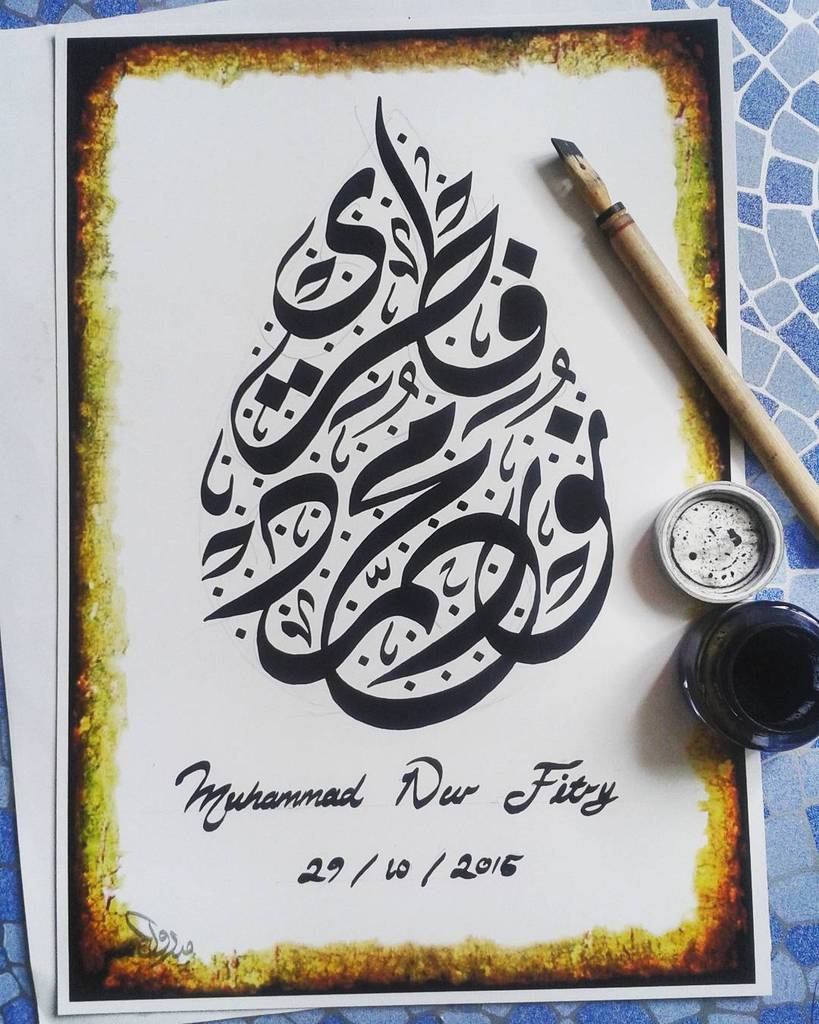 محمد نور فطري
Muhammad Nur Fitry
29 / 10 / 2015